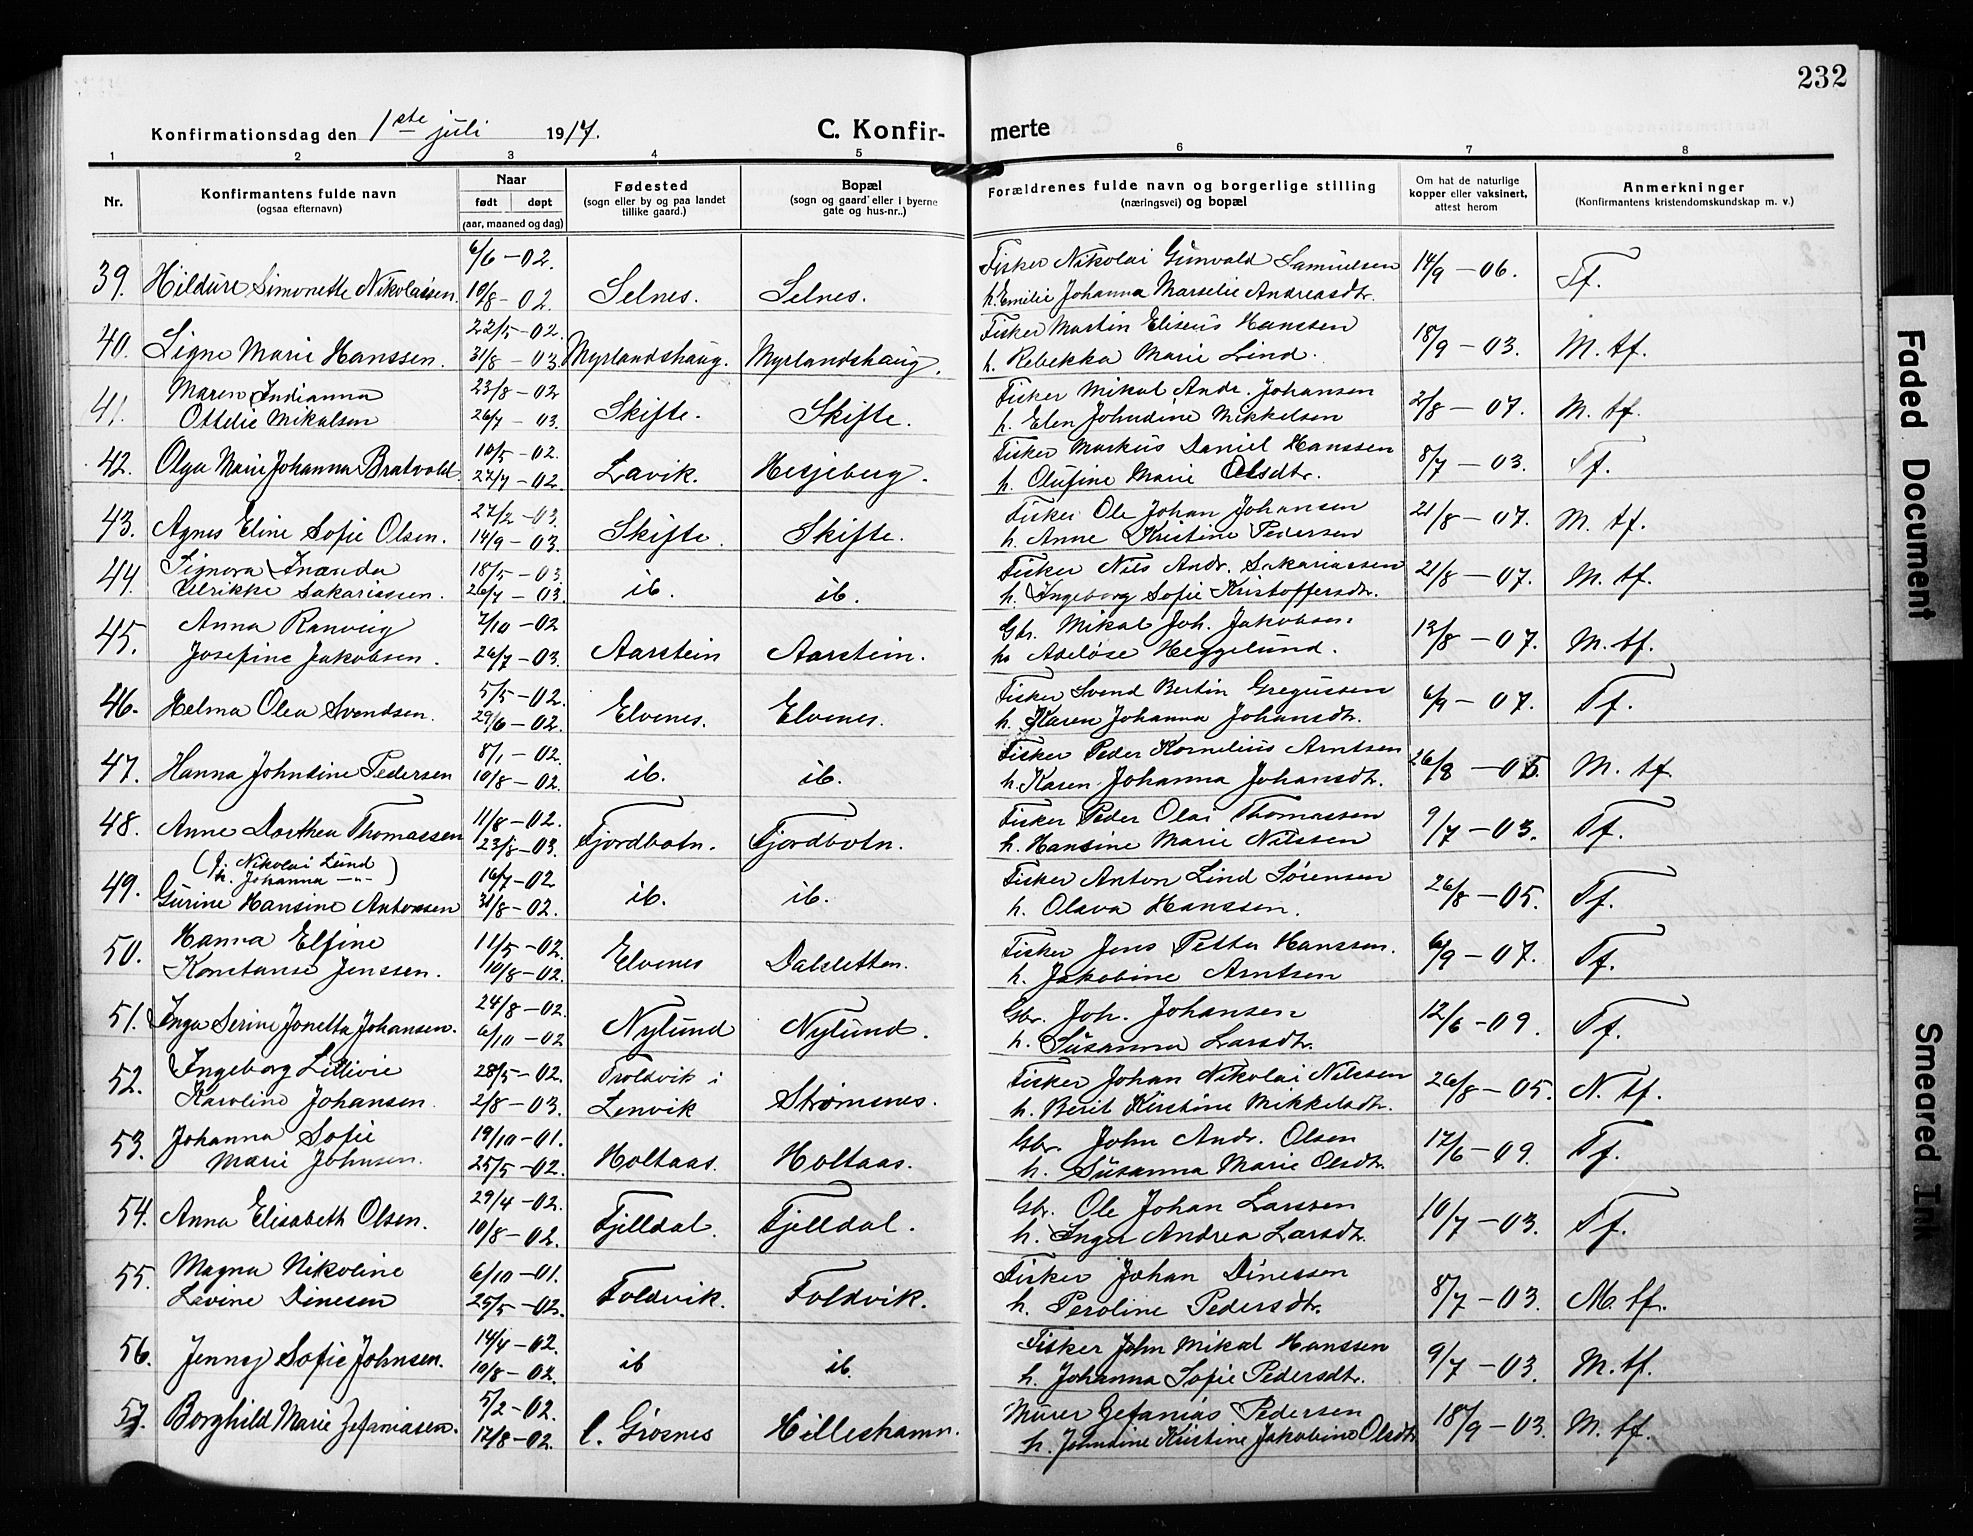 232
Konfirmationsdag den 1ste juli 1917. C. Konfir- merte
1 2 3 4 5 6 7 8
Nr. Konfirmantens fulde navn (ogsaa efternavn) Naar født døpt (aar, maaned og dag) Fødested (sogn eller by og paa landet tillike gaard.) Bopæl (sogn og gaard eller i byerne gate og hus-nr..) Forældrenes fulde navn og borgerlige stilling (næringsvei) og bopæl Om hat de naturlige kopper eller vaksinert, attest herom Anmerkninger (Konfirmantens kristendomskundskap m. v.)
6/6 - 02. Fisker Nikolai Gunvald Samuelsen 14/9 - 06.
39. Hildure Simonette Nikolaisen. 10/8 - 02. Selnes. Selnes. h. Emilie Johanna Marselie Andreasdtr. Tf.
22/5 - 02. Fisker Martin Eliseus Hanssen 18/9 - 03.
40. Signe Marie Hanssen. 31/8 - 03. Myrlandshaug. Myrlandshaug. h. Rebekka Marie Lind. M. tf.
Maren Indianna 23/8 - 02 Fisker Mikal Andr. Johansen
41. Ottelie Mikalsen 26/7 - 03. Skifte. Skifte. h. Elen Johndine Mikkelsen 21/8 - 07. M. tf.
10/5 - 02. Fisker Markus Daniel Hanssen
42. Olga Marie Johanna Bratvold. 27/7 - 02. Lavik. Hesjeberg. h. Olufine Marie Olsdtr. 8/7 - 03. Tf.
27/2 - 03. Fisker Ole Johan Johansen
43. Agnes Eline Sofie Olsen. 14/9 - 03. Skifte. Skifte. h. Anne Kristine Pedersen 21/8 - 07. M. tf.
Signora Inanda 18/5 - 03. Fisker Nils Andr. Sakariassen
44. Ulrikke Sakariassen. 26/7 - 03. ib. ib. h. Ingeborg Sofie Kristoffersdtr. 21/8 - 07. M. tf.
Anna Ranveig 7/10 - 02 Gbr. Mikal Joh. Jakobsen
45. Josefine Jakobsen. 26/7 - 03. Aarstein Aarstein. h. Adeløse Heggelund. 13/8 - 07. M. tf.
5/5 - 02. Fisker Svend Bertin Gregussen
46. Helma Olea Svendsen. 29/6 - 02. Elvenes. Elvenes. h. Karen Johanna Johansdtr. 6/9 - 07. Tf.
8/1 - 02. Fisker Peder Kornelius Arntsen
47. Hanna Johntine Pedersen 10/8 - 02. ib. ib. h. Karen Johanna Johansdtr. 26/8 - 05. M. tf.
11/8 - 02. Fisker Peder Olai Thomassen
48. Anne Dorthea Thomassen 23/8 - 03. Fjordbotn. Fjordbotn. h. Hansine Marie Nilssen 9/7 - 03. Tf.
(f. Nikolai Lund
h. Johanna —"—) 16/7 - 02 Fisker Anton Lind Sørensen
49. Gurine Hansine Antonsen 31/8 - 02. ib. ib. h. Olava Hanssen. 26/8 - 05. Tf.
Hanna Elfine 11/5 - 02. Fisker Jens Petter Hanssen.
50. Konstanse Jenssen. 10/8 - 02. Elvenes Dalsletten. h. Jakobine Arntsen 6/9 - 07. Tf.
24/8 - 02. Gbr. Joh. Johansen
51. Inga Serine Jonetta Johansen. 6/10 - 02 Nylund Nylund. h. Susanna Larsdtr. 12/6 - 09. Tf.
Ingeborg Lillivie 28/5 - 02. Troldvik i Fisker Johan Nikolai Nilssen
52. Karoline Johansen. 2/8 - 03. Lenvik Strømsnes. h. Berit Kirstine Mikkelsdtr. 26/8 - 05. N. tf.
Johanna Sofie 19/10 - 01. Gbr. John Andr. Olsen
53. Marie Johnsen. 25/5 - 02. Holtaas. Holtaas. h. Susanna Marie Olsdtr. 17/6 - 09. Tf.
29/4 - 02. Gbr. Ole Johan Larssen
54. Anna Elisabeth Olsen. 10/8 - 02. Fjelldal. Fjelldal. h. Inger Andrea Larsdtr. 10/7 - 03. Tf.
Magna Nikoline 6/10 - 01. Fisker Johan Dinessen
55. Levine Dinesen 25/5 - 02. Foldvik. Foldvik. h. Peroline Pedersdtr. 8/7 - 03. M. tf.
14/4 - 02. Fisker John Mikal Hanssen
56. Jenny Sofie Johnsen. 10/8 - 02. ib ib. h. Johanna Sofie Pedersdtr. 9/7 - 03. M. tf.
5/2 - 02. Murer Zefanias Pedersen
57. Borghild Marie Zefaniasen. 17/8 - 02. l. Grosnes Hilleshamn. h. Johndine Kristine Jakobine Olsdtr 18/9 - 03. M. tf.
Faded Document
Smeared Ink